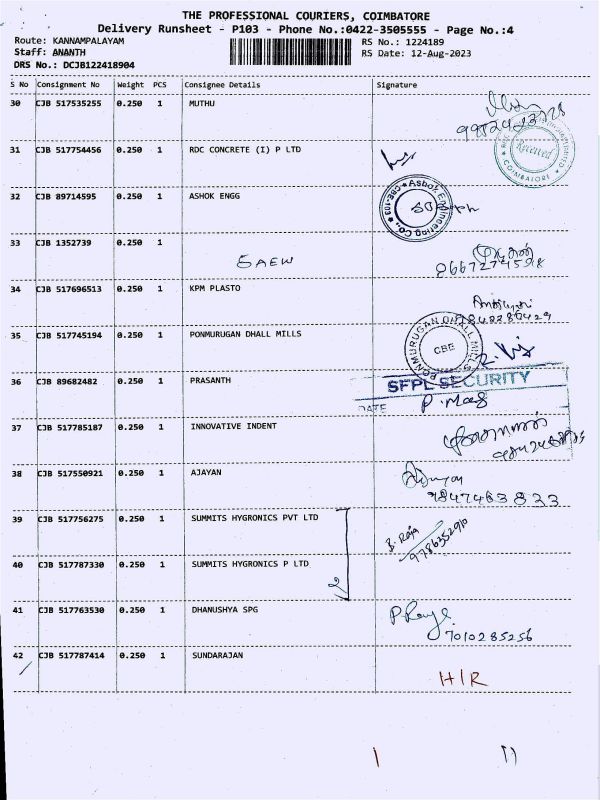 THE PROFESSIONAL COURIERS, COIMBATORE
Delivery Runsheet - P103 - Phone No.:0422-3505555 - Page No.:4
Route: KANNAMPALAYAM RS No.: 1224189
Staff: ANANTH RS Date: 12-Aug-2023
DRS No.: DCJB122418904
S No Consignment No Weight PCS Consignee Details Signature
30 CJB 517535255 0.250 1 MUTHU
Received
COIMBATORE
31 CJB 517754456 0.250 1 RDC CONCRETE (I) P LTD
32 CJB 89714595 0.250 1 ASHOK ENGG
Ashok Engineering Co., CBE-103
33 CJB 1352739 0.250 1
SAEW
8667274598
34 CJB 517696513 0.250 1 KPM PLASTO
35 CJB 517745194 0.250 1 PONMURUGAN DHALL MILLS
PONMURUGAN DHALL MILLS
CBE
36 CJB 89682482 0.250 1 PRASANTH
SFPL SECURITY
DATE
37 CJB 517785187 0.250 1 INNOVATIVE INDENT
38 CJB 517550921 0.250 1 AJAYAN
9847463833
39 CJB 517756275 0.250 1 SUMMITS HYGRONICS PVT LTD
B. Raja
9786352910
40 CJB 517787330 0.250 1 SUMMITS HYGRONICS P LTD
2
41 CJB 517763530 0.250 1 DHANUSHYA SPG
7010285256
42 CJB 517787414 0.250 1 SUNDARAJAN
H/R